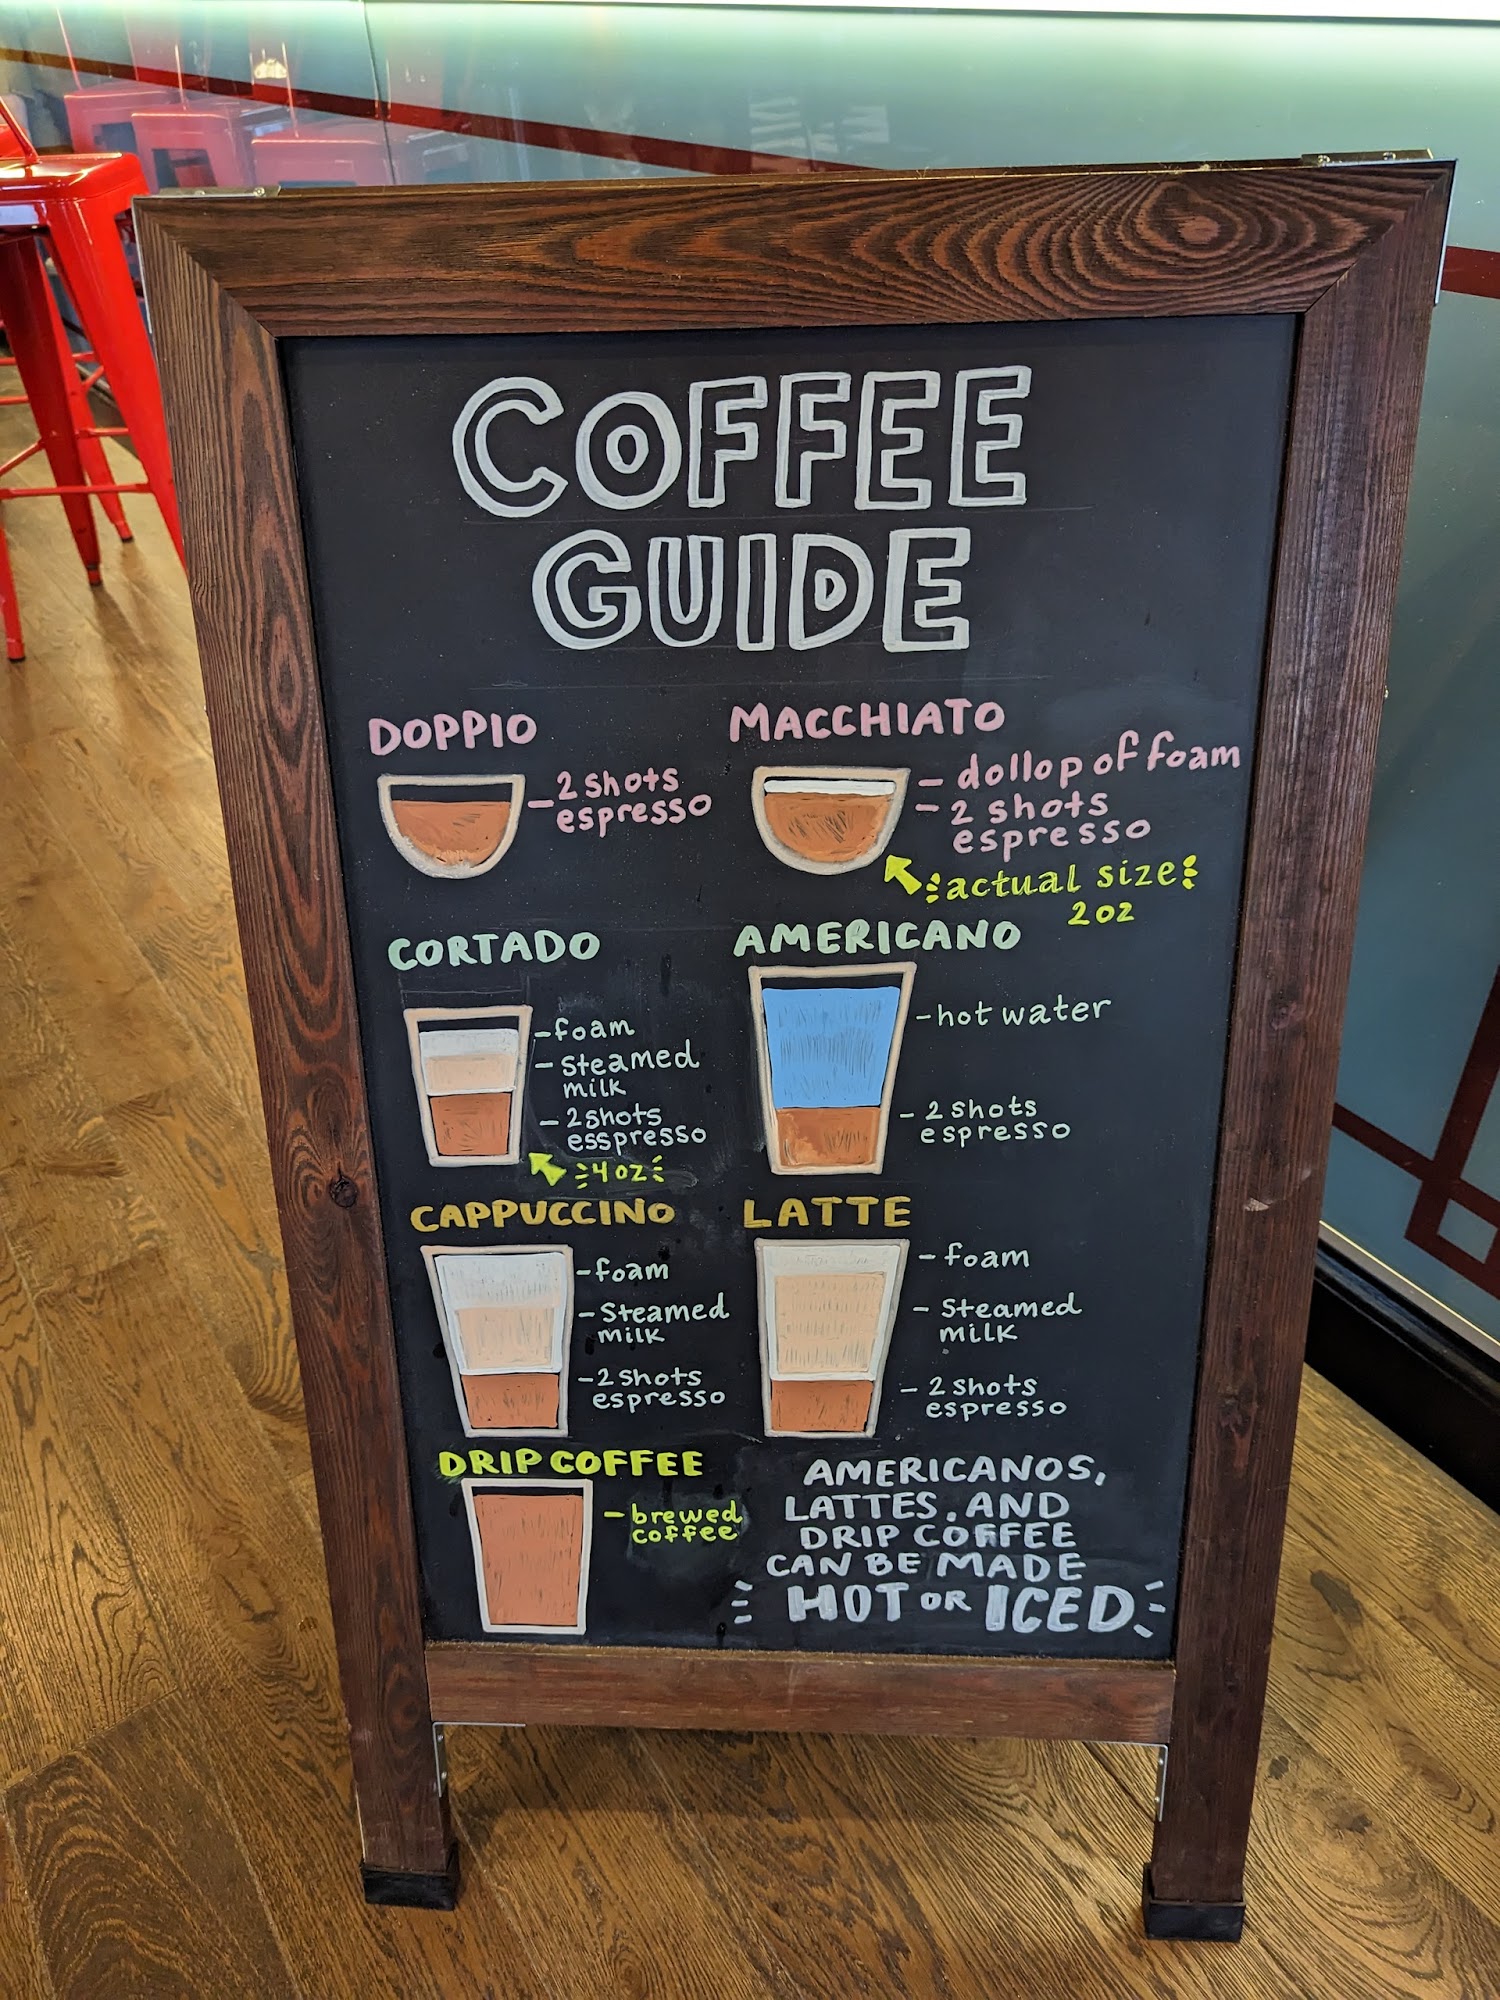 COFFEE
GUIDE
DOPPIO
- 2 shots
espresso
MACCHIATO
- dollop of foam
- 2 shots
espresso
actual size
2oz
CORTADO
- foam
- steamed
milk
- 2 shots
esspresso
4oz
AMERICANO
- hot water
- 2 shots
espresso
CAPPUCCINO
- foam
- steamed
milk
- 2 shots
espresso
LATTE
- foam
- steamed
milk
- 2 shots
espresso
DRIP COFFEE
- brewed
coffee
AMERICANOS,
LATTES, AND
DRIP COFFEE
CAN BE MADE
HOT OR ICED